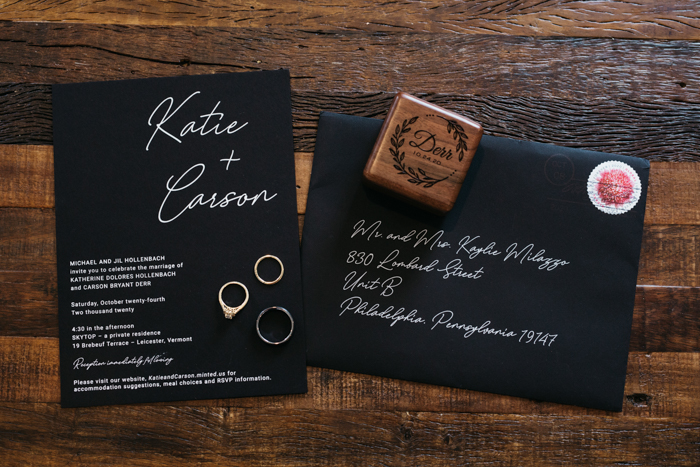 Katie
+
Carson
MICHAEL AND JIL HOLLENBACH
invite you to celebrate the marriage of
KATHERINE DOLORES HOLLENBACH
and CARSON BRYANT DERR
Saturday, October twenty-fourth
Two thousand twenty
4:30 in the afternoon
SKYTOP – a private residence
19 Brebeuf Terrace – Leicester, Vermont
Reception immediately following
Please visit our website, KatieandCarson.minted.us for
accommodation suggestions, meal choices and RSVP information.
Derr
10.24.20
Mr. and Mrs. Kaylie Milazzo
830 Lombard Street
Unit B
Philadelphia, Pennsylvania 19147